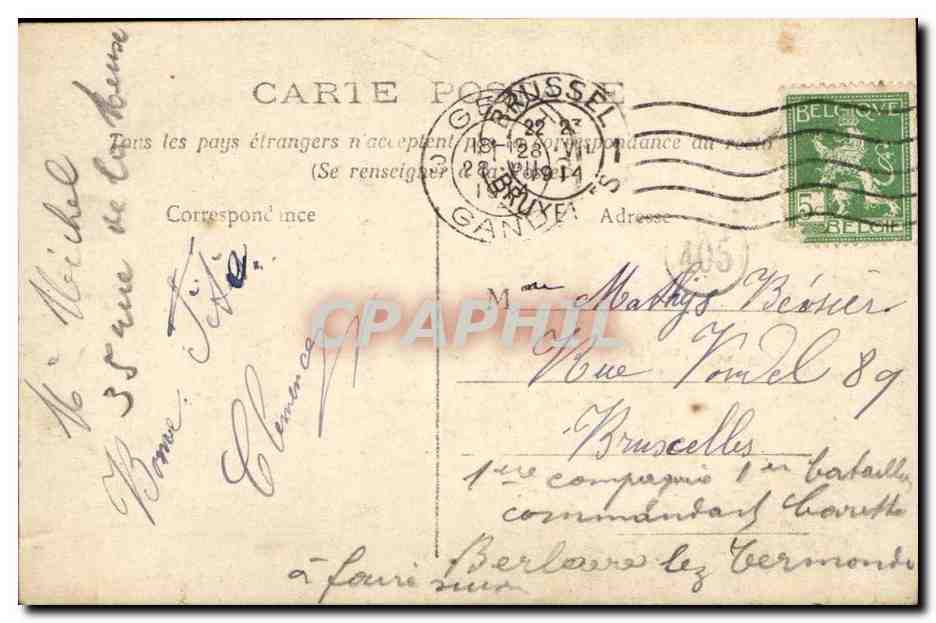 CARTE POSTALE
Tous les pays étrangers n'acceptent pas la correspondance au recto
(Se renseigner à la Poste)
Correspondance
Adresse
BRUSSEL
22-23
28 VII
1914
BRUXELLES
GENT
GAND
BELGIQUE
5
BELGIË
405
CPAPHIL
Mr Michel
35 rue de la
Bonne Fête
Clemence
Mme Mathijs Bérsier
Rue Vondel 89
Bruxelles
1ere compagnie 1er bataillon
commandant
Berlaere lez Termonde
à faire suivre